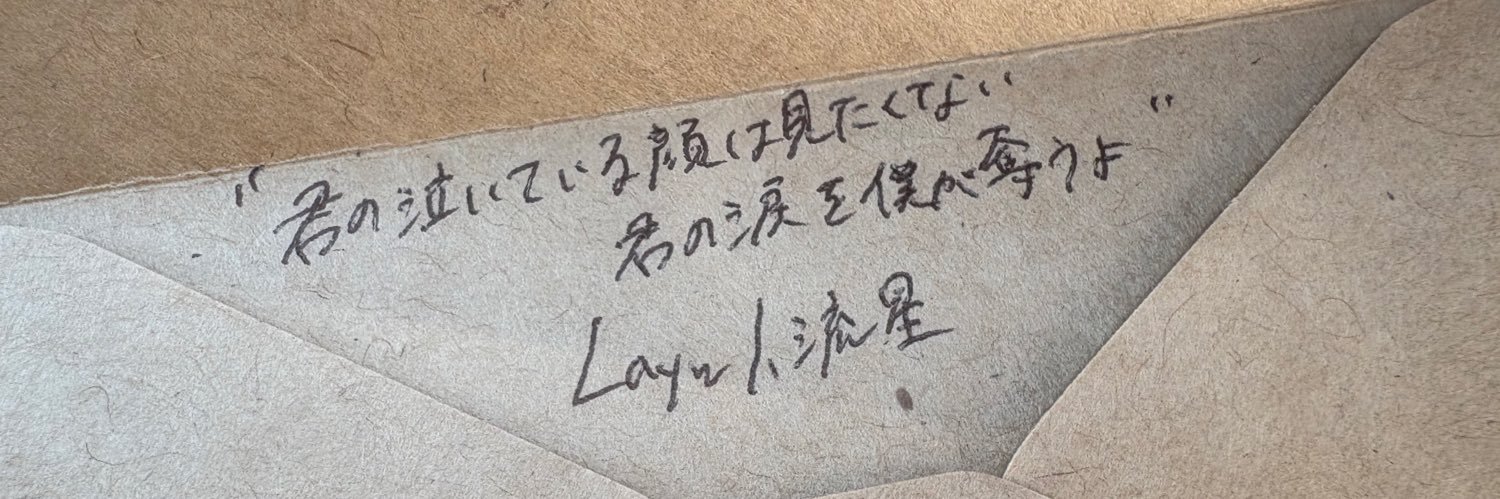 "君の泣いている顔は見たくない
君の涙を僕が奪うよ"
流星